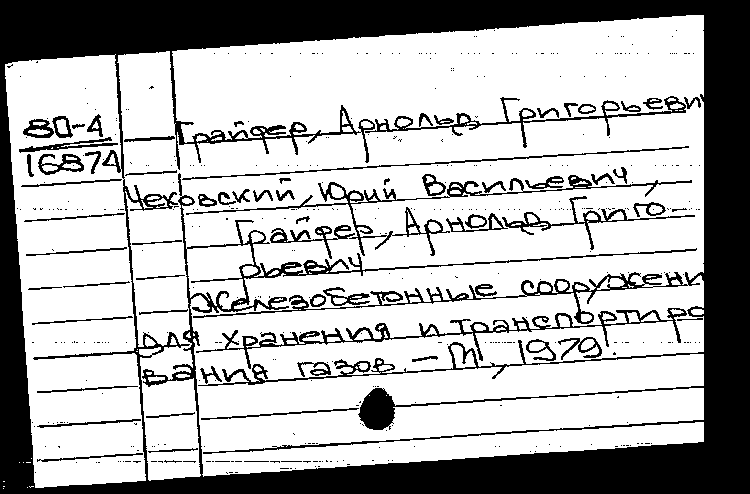 80-4
16874
Грайфер, Арнольд Григорьевич
Чековский, Юрий Васильевич,
Грайфер, Арнольд Григо-
рьевич
Железобетонные сооружени
для хранения и транспортиро
вания газов. — М., 1979.